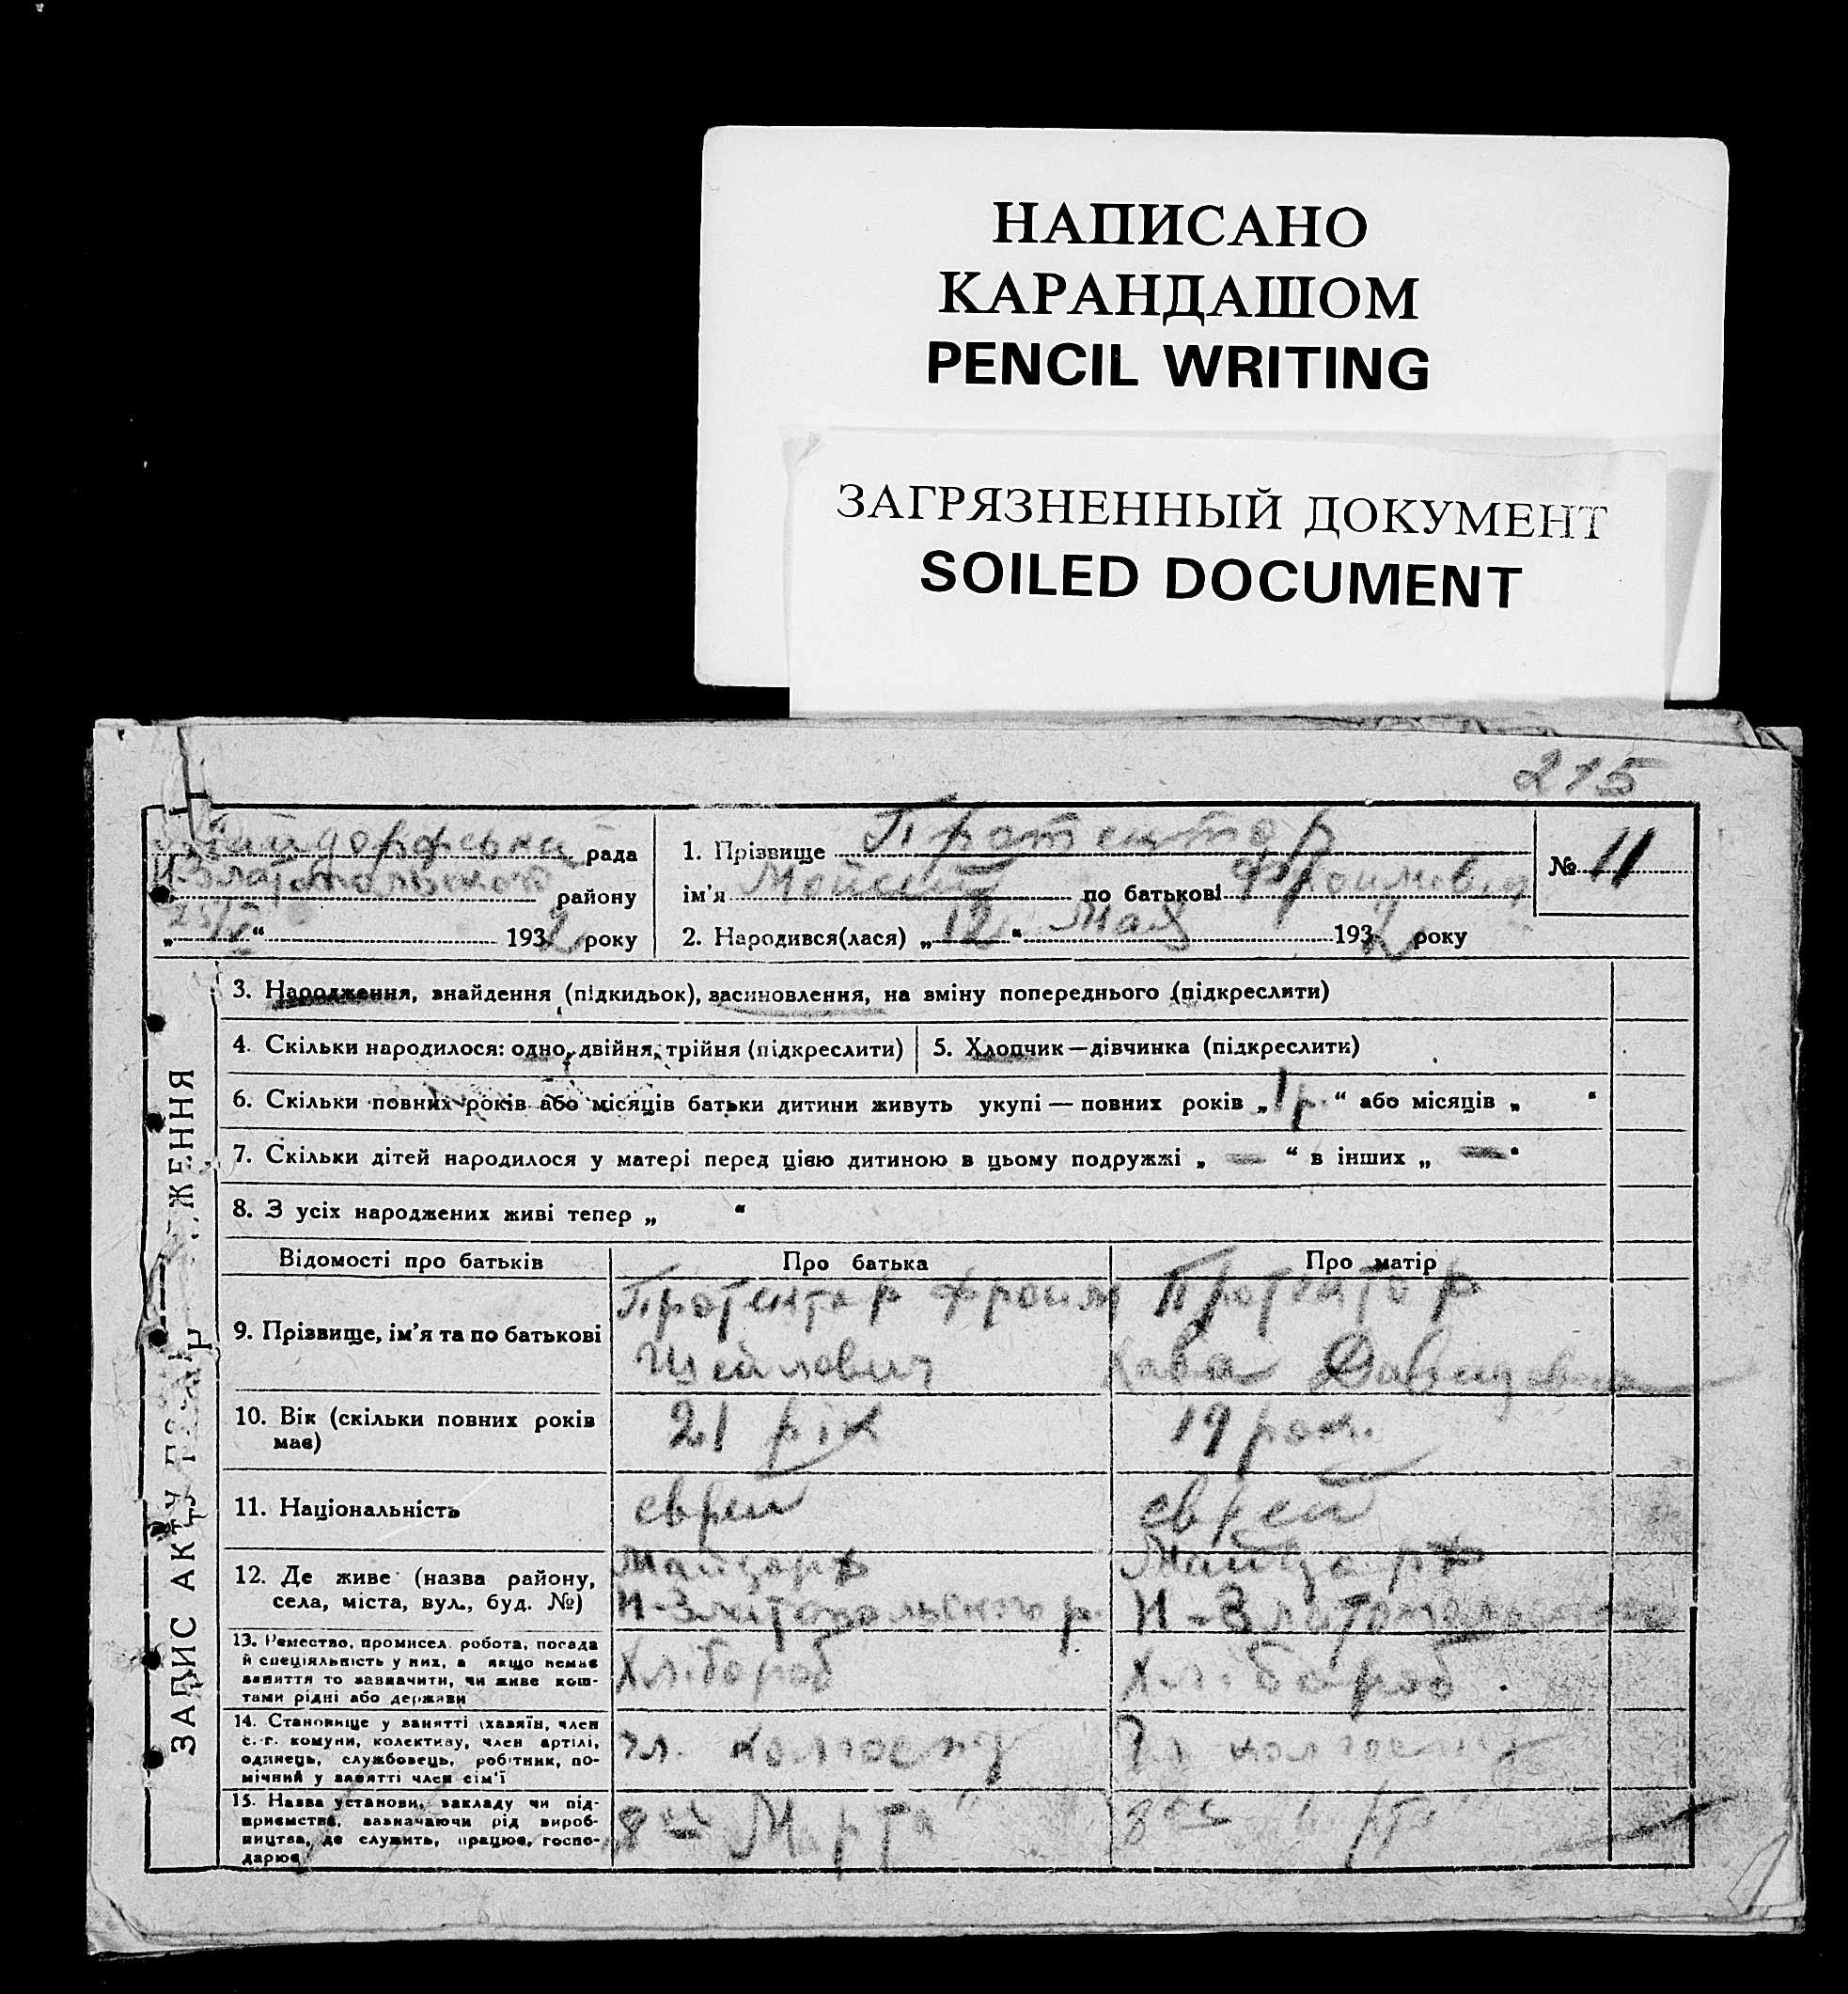 НАПИСАНО
КАРАНДАШОМ
PENCIL WRITING
ЗАГРЯЗНЕННЫЙ ДОКУМЕНТ
SOILED DOCUMENT
215
рада
Н-Златопольского району
25/V 1932 року
1. Прізвище Протентор
ім’я Мойсей по батькові Фроимовид
2. Народився(лася) „12“ Мая 1932 року
№ 11
ЗАПИС АКТУ ЖЕННЯ
3. Народження, знайдення (підкидьок), засиновлення, на зміну попереднього (підкреслити)
4. Скільки народилося: одно, двійня, трійня (підкреслити)
5. Хлопчик—дівчинка (підкреслити)
6. Скільки повних років або місяців батьки дитини живуть укупі — повних років „1 р.“ або місяців „ “
7. Скільки дітей народилося у матері перед цією дитиною в цьому подружжі „ — “ в інших „ — “
8. З усіх народжених живі тепер „ “
Відомості про батьків Про батька Про матір
9. Прізвище, ім’я та по батькові
Протентор Фроим
Шейлович
Протентор
Хава Давидовна
10. Вік (скільки повних років має)
21 рік
19 рок.
11. Національність
еврей
еврей
12. Де живе (назва району,
села, міста, вул., буд. №)
Майдорф
Н-Златопольского р.
Майдорф
Н-Златопольского
13. Ремество, промисел, робота, посада
й спеціяльність у них, а якщо немає
заняття то зазначити, чи живе кош-
тами рідні або держави
Хлібороб
Хлібороб
14. Становище у занятті (хазяїн, член
с.-г. комуни, колективу, член артілі,
одинець, службовець, робітник, по-
мічний у занятті член сім’ї
чл. колгоспу
чл колгоспу
15. Назва установи, закладу чи під-
приємства, зазначаючи рід вироб-
ництва, де служить, працює, госпо-
дарює
„8ое Марта“
8ое